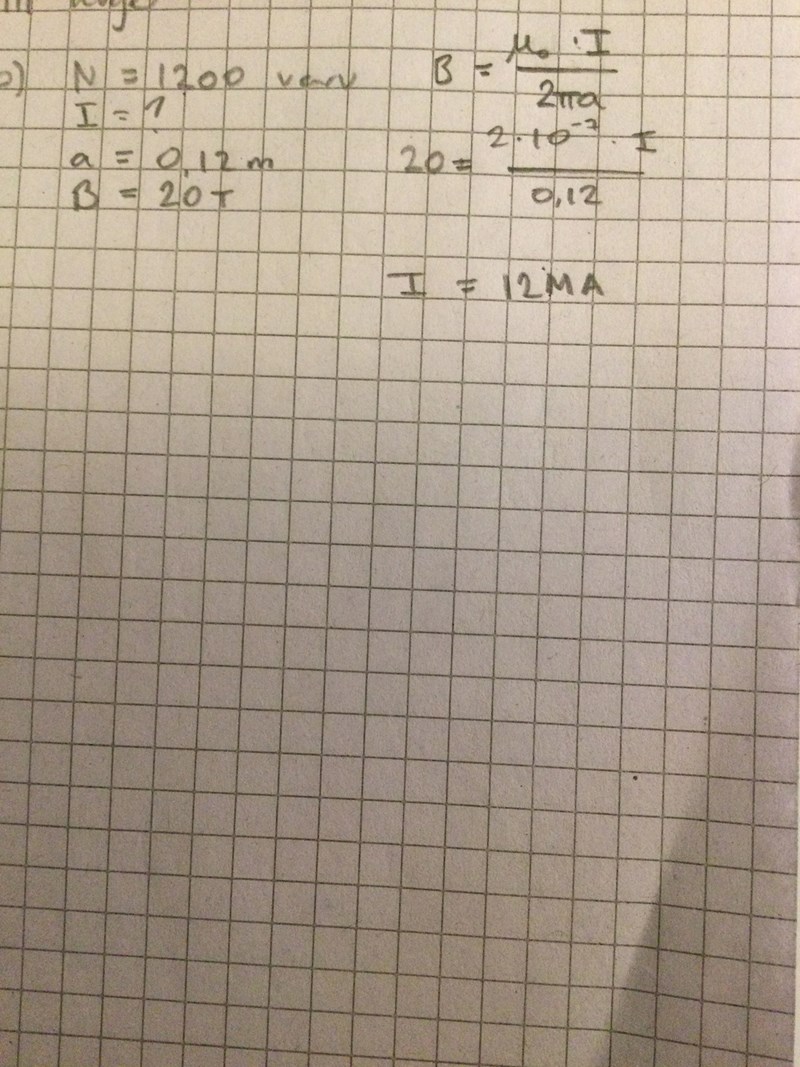 b) N = 1200 varv
I = ?
a = 0,12 m
B = 20 T
B = μ₀ · I / 2πa
20 = 2·10⁻⁷ · I / 0,12
I = 12 MA